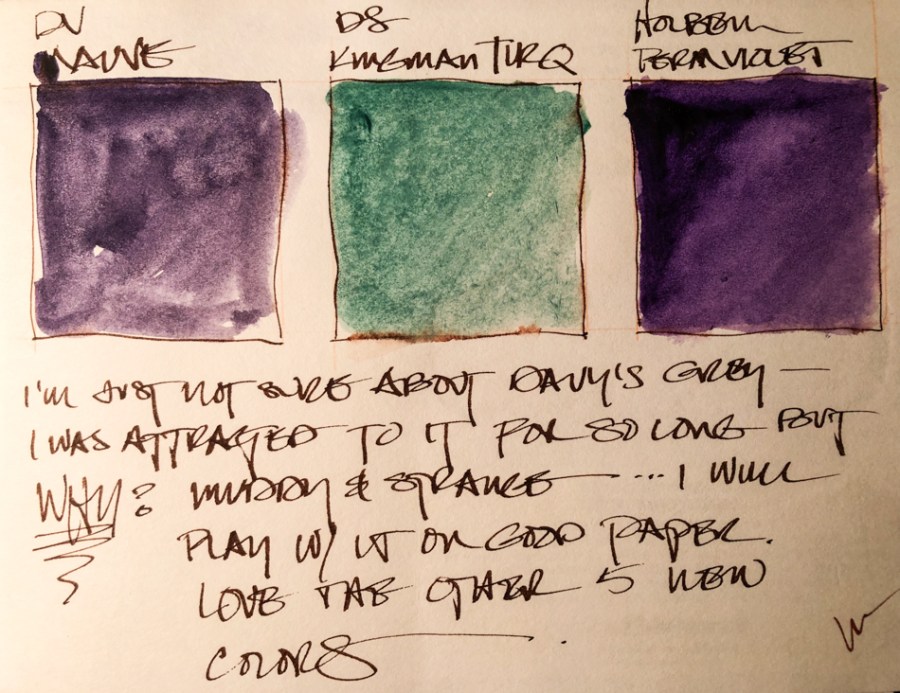 DV
MAUVE
DS
KINGMAN TURQ
HOLBEIN
PERM VIOLET
I'M JUST NOT SURE ABOUT DAVY'S GREY —
I WAS ATTRACTED TO IT FOR SO LONG BUT
WHY? MUDDY & STRANGE — ... I WILL
PLAY W/ IT ON GOOD PAPER.
LOVE THE OTHER 5 NEW
COLORS — .